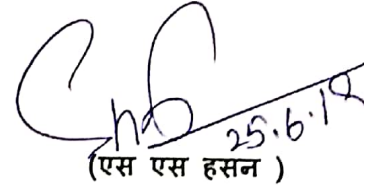 25.6.18
(एस एस हसन )